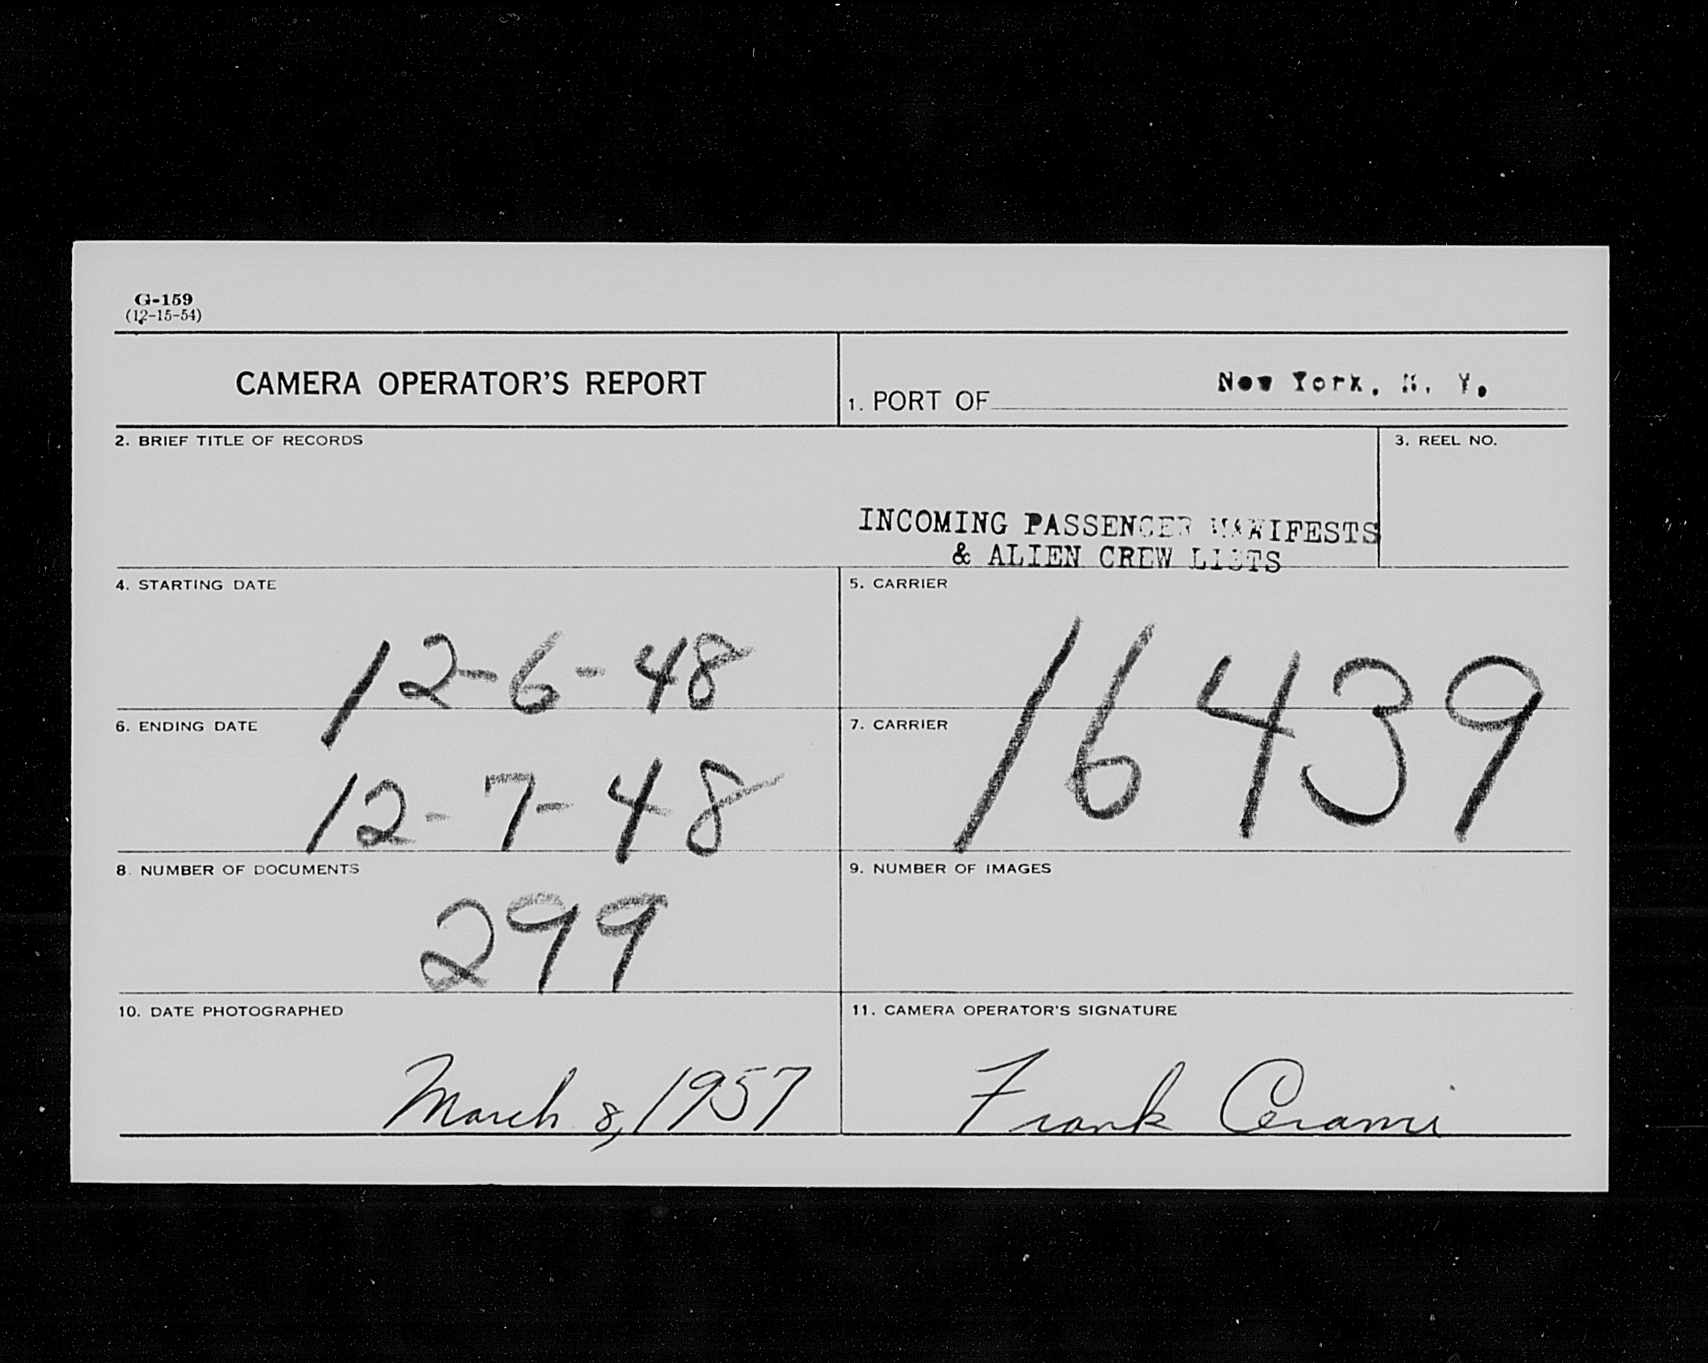 G-159
(12-15-54)
CAMERA OPERATOR'S REPORT
1. PORT OF New York, N. Y.
2. BRIEF TITLE OF RECORDS
3. REEL NO.
INCOMING PASSENGER MANIFESTS
& ALIEN CREW LISTS
4. STARTING DATE
12-6-48
5. CARRIER
16439
6. ENDING DATE
12-7-48
7. CARRIER
8. NUMBER OF DOCUMENTS
299
9. NUMBER OF IMAGES
10. DATE PHOTOGRAPHED
March 8, 1957
11. CAMERA OPERATOR'S SIGNATURE
Frank Cerami